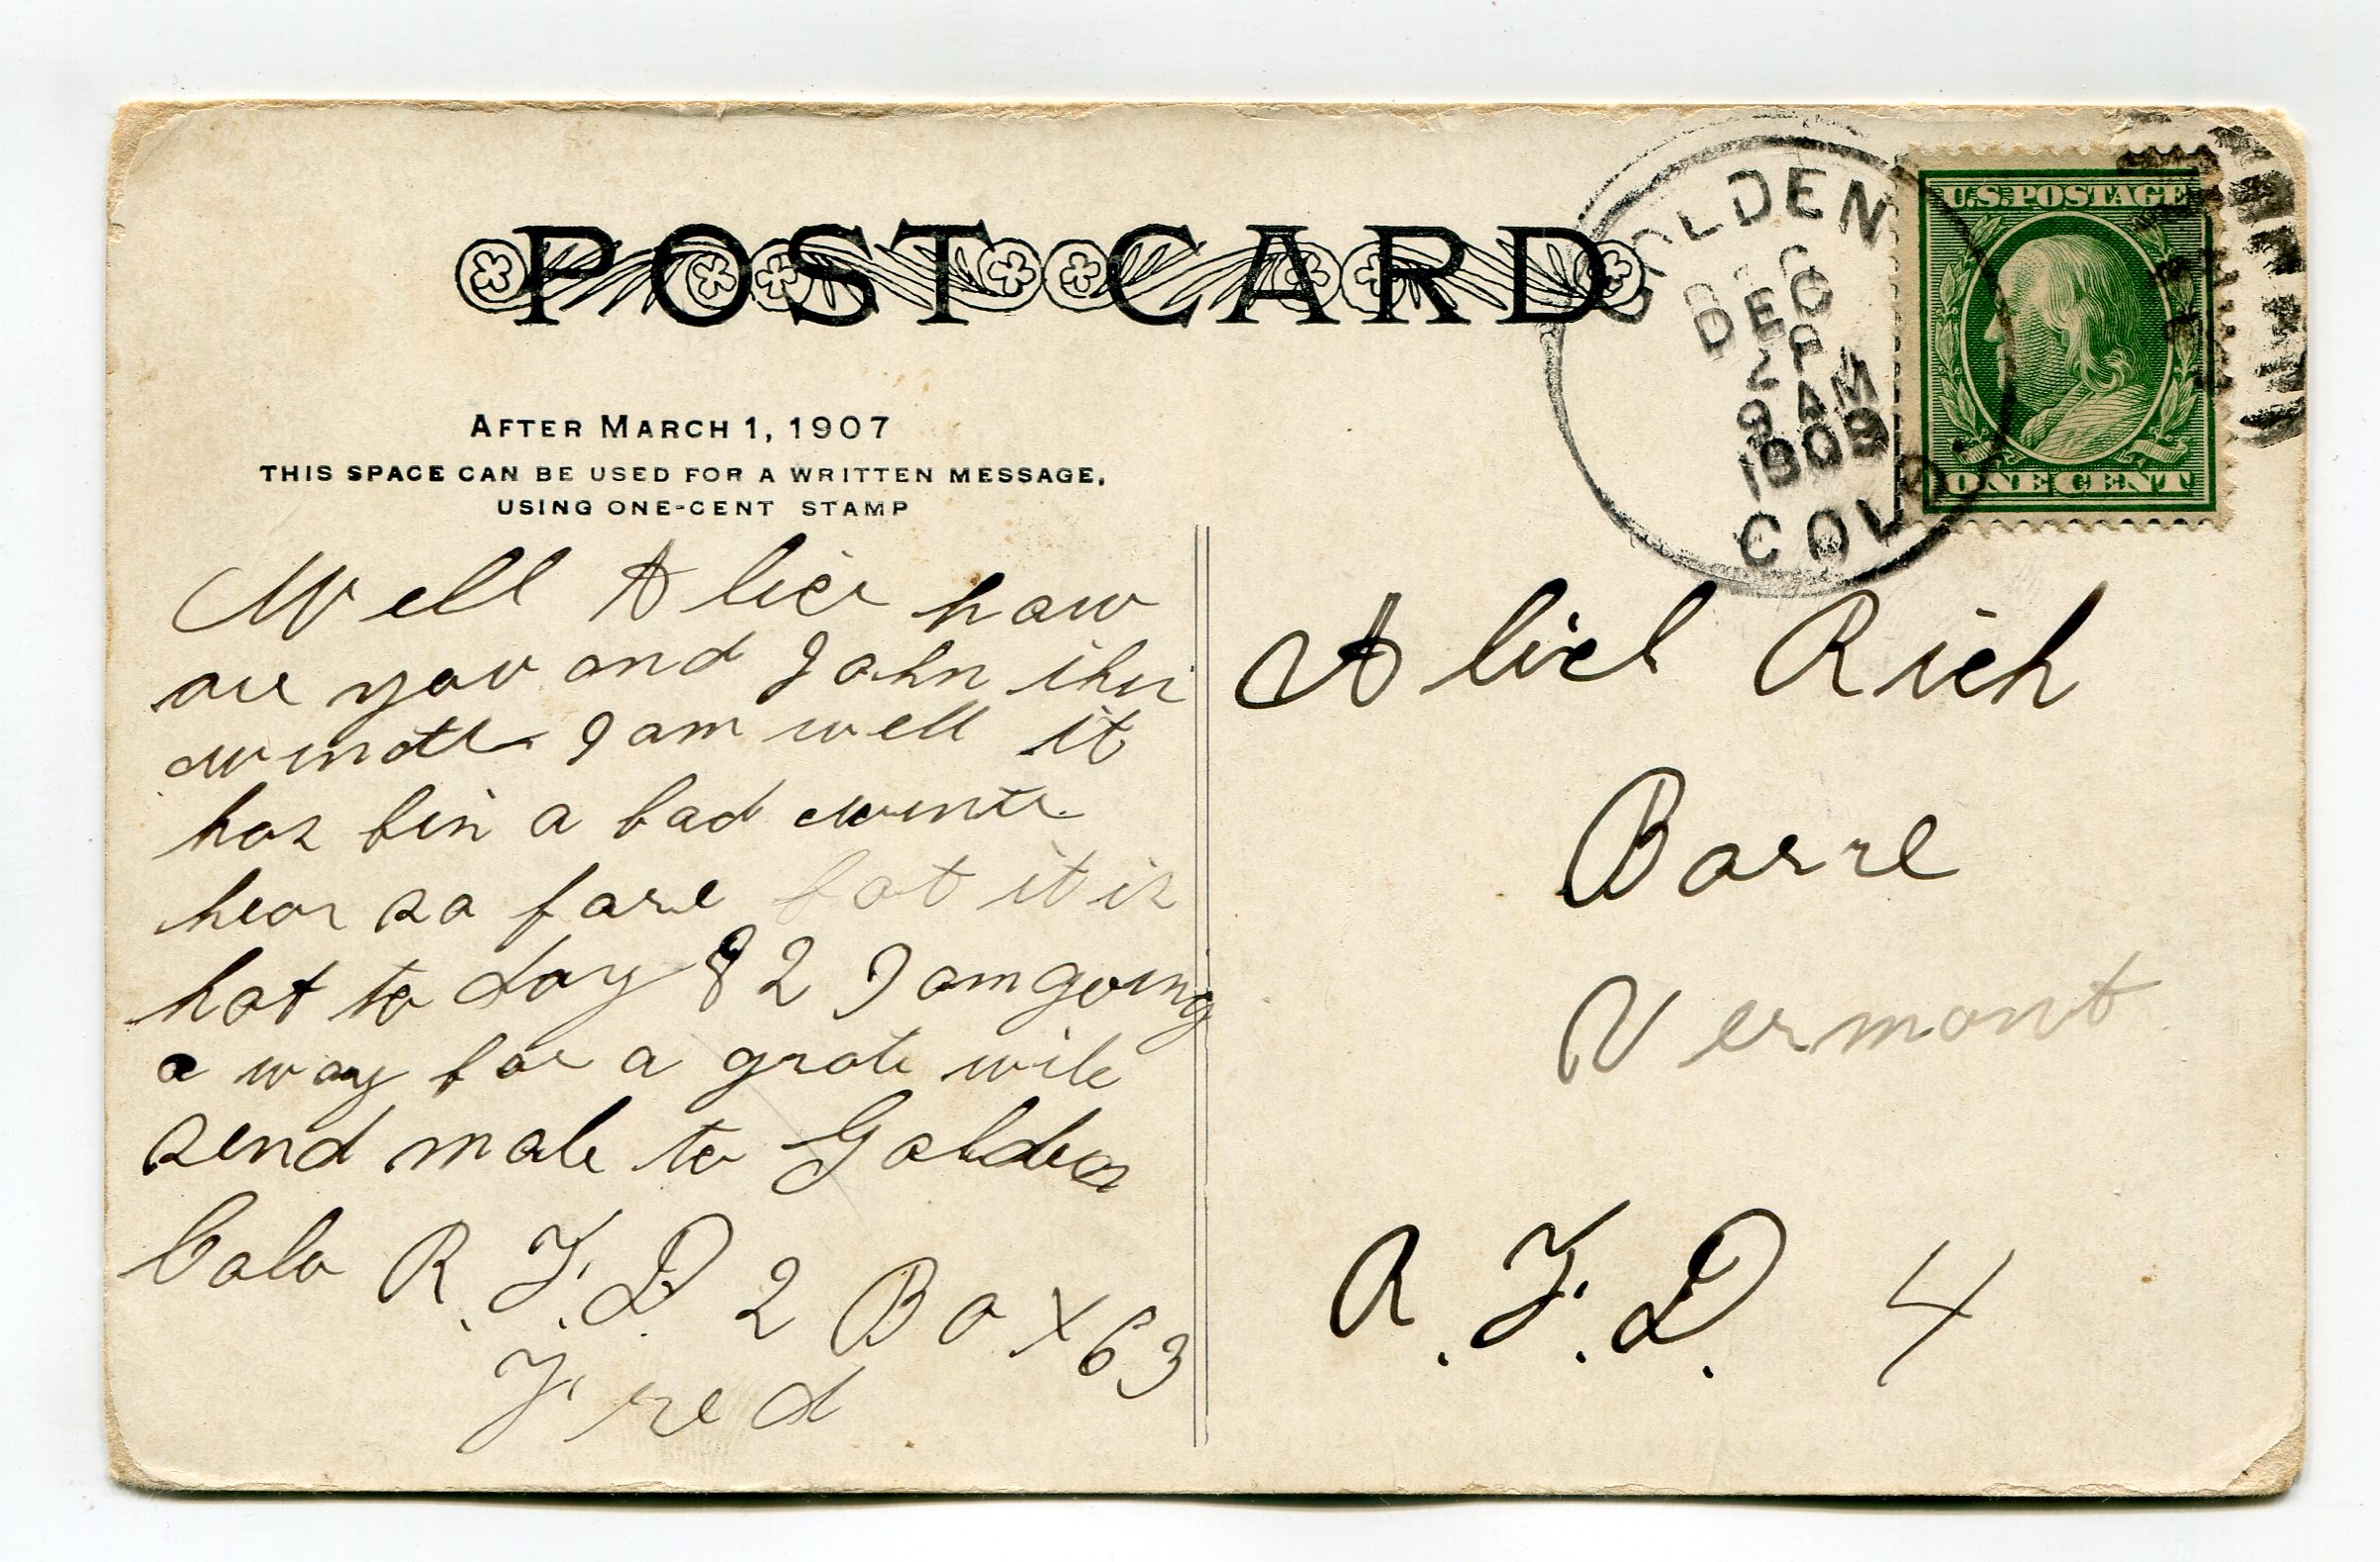 POST CARD
AFTER MARCH 1, 1907
THIS SPACE CAN BE USED FOR A WRITTEN MESSAGE,
USING ONE-CENT STAMP
GOLDEN
DEC
9 AM
1909
COLO.
U.S. POSTAGE
ONE CENT
Well Alice how
are you and John this
wintte I am well it
has bin a bad winte
hear so fare bot it is
hot to day 82 I am going
a way for a grate wile
send male to Golden
Colo R.F.D 2 Box 63
Fred
Alice Rich
Barre
Vermont
R.F.D. 4